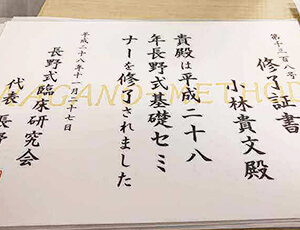 第十三百八号
修了証書
小林貴文殿
貴殿は平成二十八
年長野式基礎セミ
ナーを修了されました
平成二十八年十一月二十七日
長野式臨床研究会
代表 長野
NAGANO-METHOD